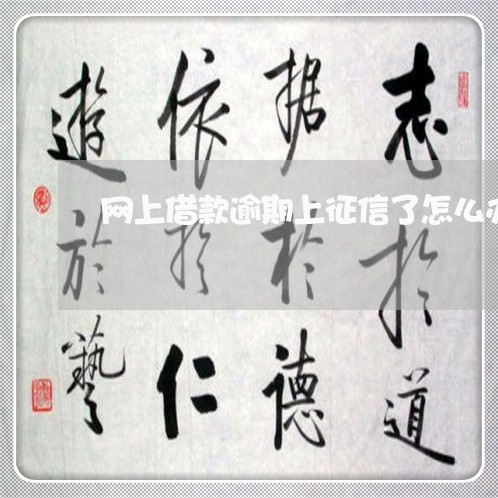 志於道
据於德
依於仁
遊於藝
网上借款逾期上征信了怎么